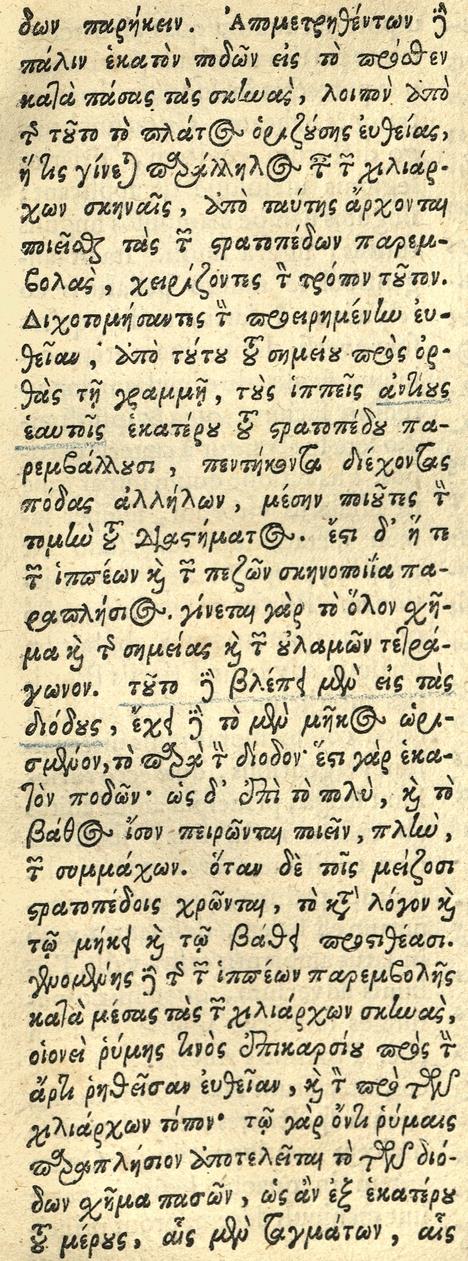 δων παρήκειν. Ἀπομετρηθέντων δὲ
πάλιν ἑκατὸν ποδῶν εἰς τὸ πρόσθεν
κατὰ πάσας τὰς σκηνὰς, λοιπὸν ἀπὸ
τῆς τοῦτο τὸ πλάτος ὁριζούσης εὐθείας,
ἥτις γίνεται παράλληλος τῶν τῶν χιλιάρ-
χων σκηναῖς, ἀπὸ ταύτης ἄρχονται
ποιεῖσθαι τὰς τῶν στρατοπέδων παρεμ-
βολὰς, χειρίζοντες τὸν τρόπον τοῦτον.
Διχοτομήσαντες τὴν προειρημένην εὐ-
θεῖαν, ἀπὸ τούτου τοῦ σημείου πρὸς ὀρ-
θὰς τῇ γραμμῇ, τοὺς ἱππεῖς ἀντίους
ἑαυτοῖς ἑκατέρου τοῦ στρατοπέδου πα-
ρεμβάλλουσι, πεντήκοντα διέχοντας
πόδας ἀλλήλων, μέσην ποιοῦτες τὴν
τομὴν τοῦ διαστήματος. ἔστι δ' ἥ τε
τῶν ἱππέων καὶ τῶν πεζῶν σκηνοποιΐα πα-
ραπλήσιος. γίνεται γὰρ τὸ ὅλον σχῆ-
μα καὶ τῆς σημείας καὶ τῶν οὐλαμῶν τετρά-
γωνον. τοῦτο δὲ βλέπει μὲν εἰς τὰς
διόδους, ἔχει δὲ τὸ μὲν μῆκος ὡρι-
σμένον, τὸ παρὰ τὴν δίοδον· ἔστι γὰρ ἑκα-
τὸν ποδῶν· ὡς δ' ἐπὶ τὸ πολὺ, καὶ τὸ
βάθος ἴσον πειρῶνται ποιεῖν, πλὴν,
τῶν συμμάχων. ὅταν δὲ τοῖς μείζοσι
στρατοπέδοις χρῶνται, τὸ κατὰ λόγον καὶ
τῷ μήκει καὶ τῷ βάθει προστιθέασι.
γενομένης δὲ τῆς τῶν ἱππέων παρεμβολῆς
κατὰ μέσας τὰς τῶν χιλιάρχων σκηνὰς,
οἱονεὶ ῥύμης τινὸς ἐπικαρσίου πρὸς τὴν
ἄρτι ῥηθεῖσαν εὐθεῖαν, καὶ τὸν πρὸ τῶν
χιλιάρχων τόπον· τῷ γὰρ ὄντι ῥύμαις
παραπλήσιον ἀποτελεῖται τὸ τῶν διό-
δων σχῆμα πασῶν, ὡς ἂν ἐξ ἑκατέρου
τοῦ μέρους, αἷς μὲν ταγμάτων, αἷς